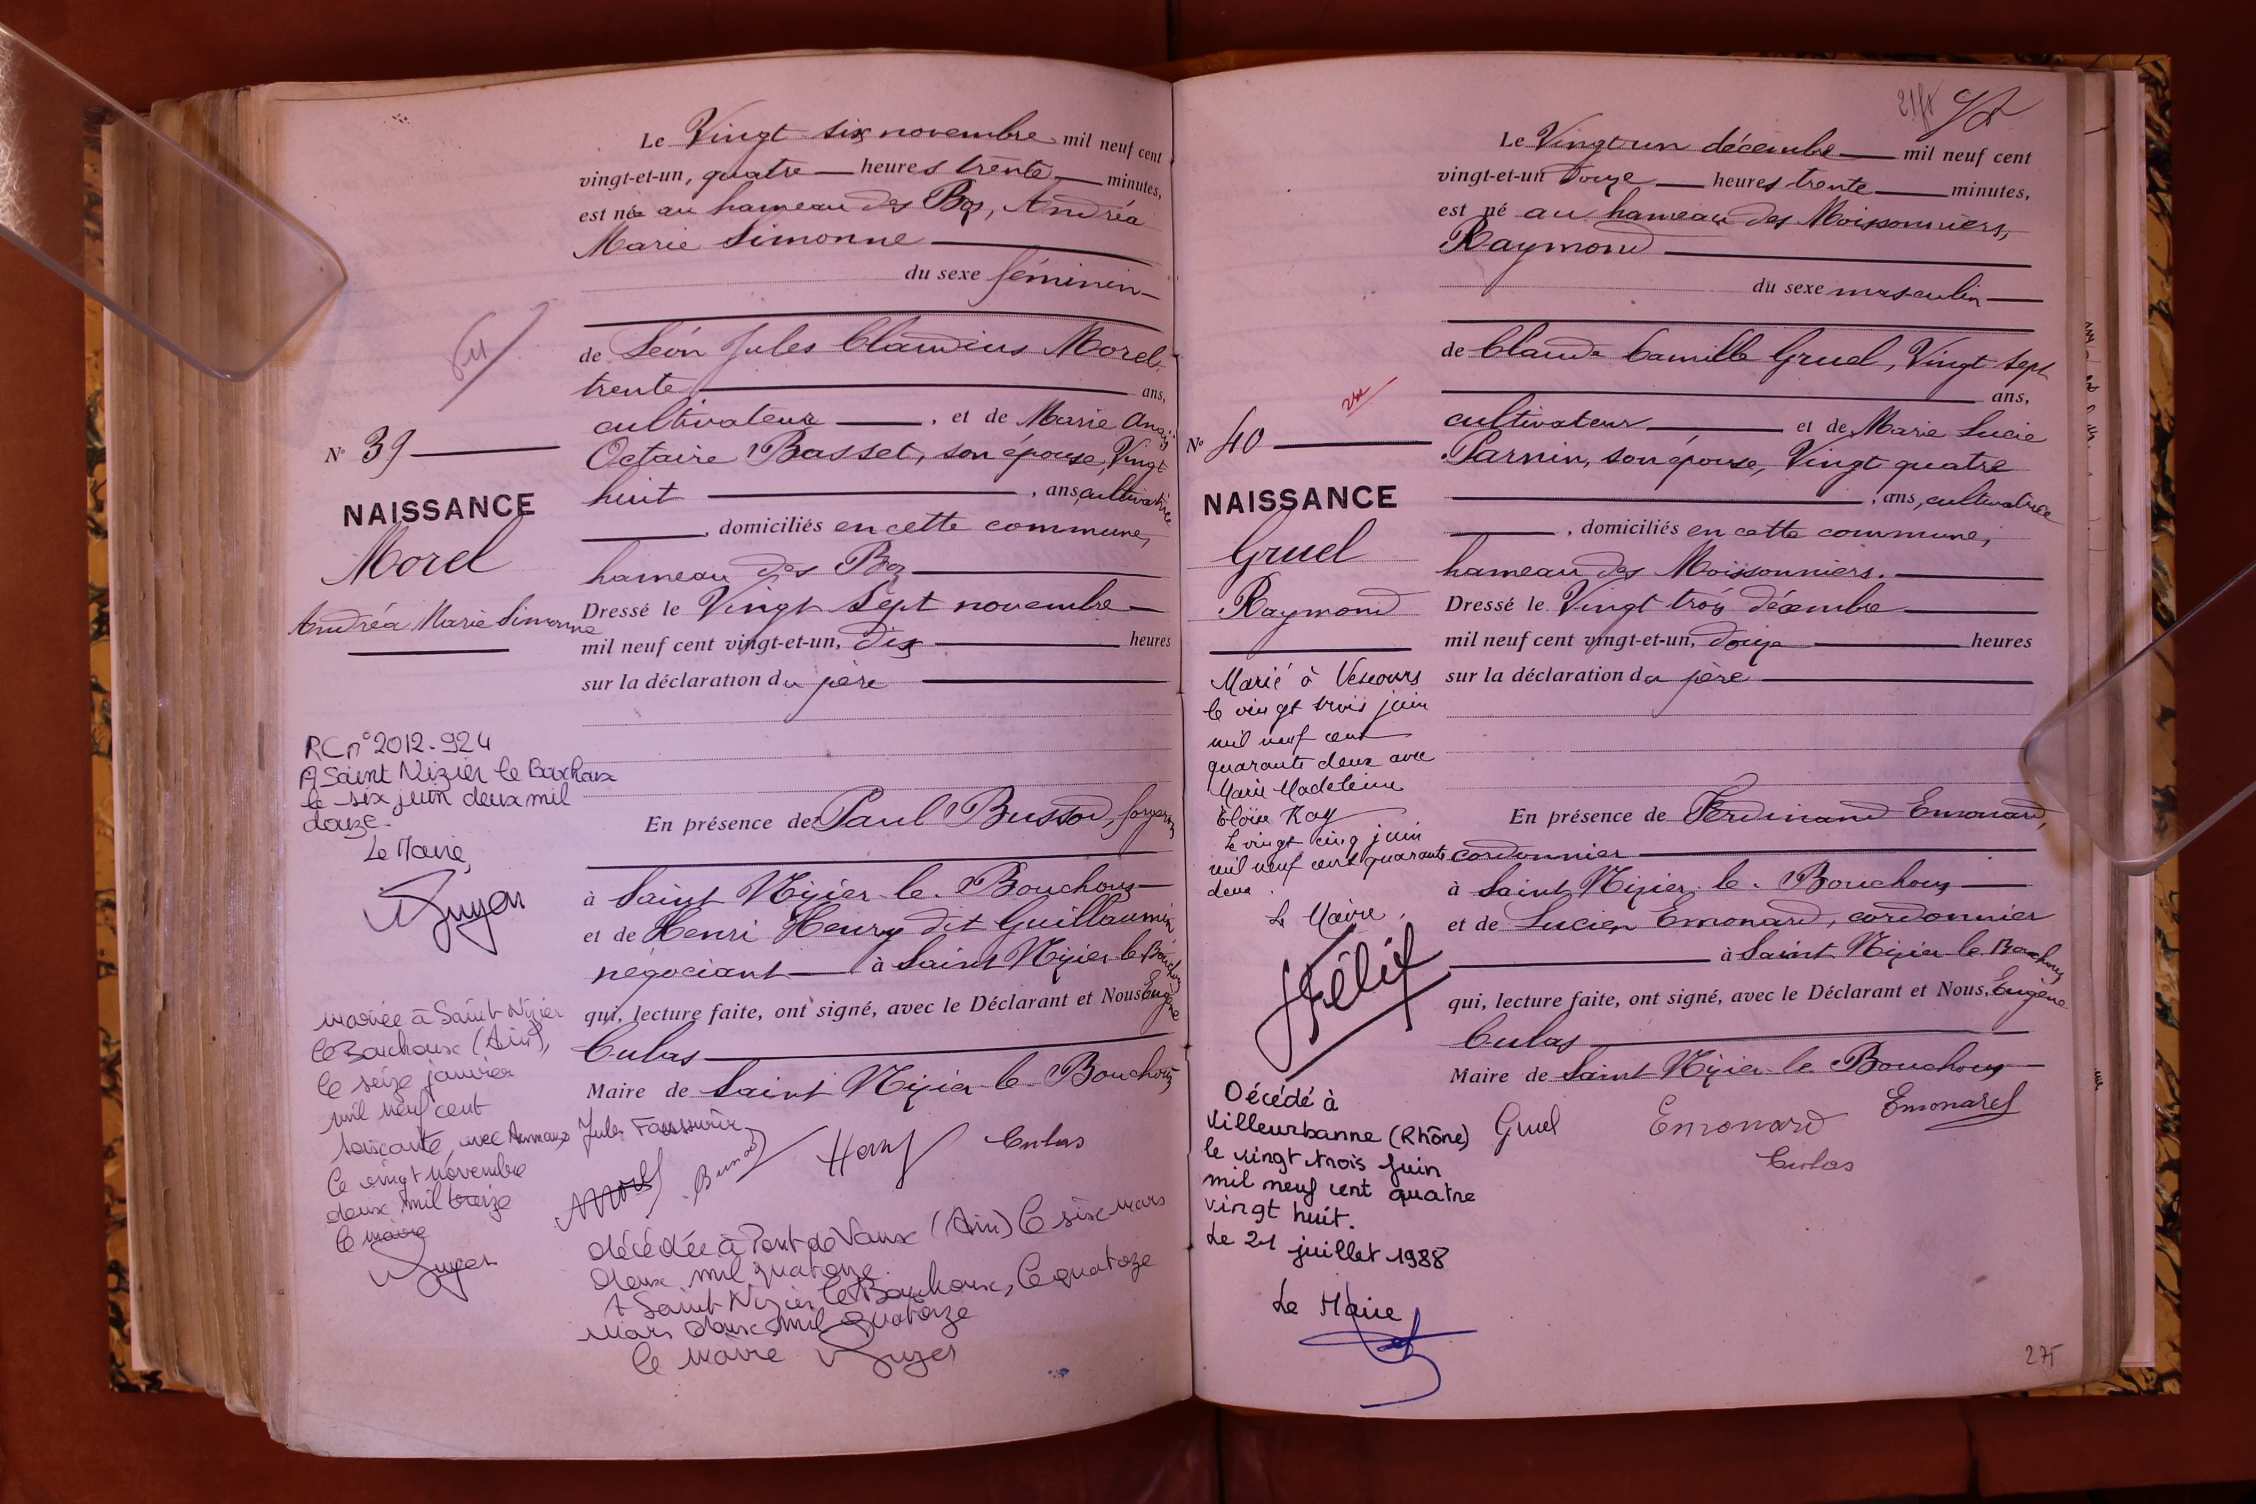 Le Vingt six novembre mil neuf cent
vingt-et-un, quatre heures trente minutes,
est née au hameau des Boz, Andréa
Marie Simonne
du sexe féminin
de Léon Jules Claudius Morel,
trente ans,
cultivateur, et de Marie
Octaire Basset, son épouse, Vingt
huit, ans, cultivatrice
, domiciliés en cette commune,
hameau des Boz
Dressé le Vingt Sept novembre
mil neuf cent vingt-et-un, dix heures
sur la déclaration du père
En présence de Paul Bussod, forgeron
à Saint Nizier le Bouchoux
et de Henri Henry dit Guillaumin
négociant à Saint Nizier le Bouchoux
qui, lecture faite, ont signé, avec le Déclarant et Nous Eugène
Culas
Maire de Saint Nizier le Bouchoux
Culas
N° 39
NAISSANCE
Morel
Andréa Marie Simonne
RC n° 2012-924
A Saint Nizier le Bouchoux
le six juin deux mil
douze.
Le Maire,
mariée à Saint Nizier
le Bouchoux (Ain),
le seize janvier
mil neuf cent
soixante, avec Jules
le vingt novembre
deux mil treize
le maire
décédée à Pont de Vaux (Ain) le six mars
deux mil quatorze.
A Saint Nizier le Bouchoux, le quatorze
mars deux mil quatorze
le maire
Le Vingt un décembre mil neuf cent
vingt-et-un douze heures trente minutes,
est né au hameau des Moissonniers,
Raymond
du sexe masculin
de Claude Camille Gruel, Vingt Sept
ans,
cultivateur et de Marie Lucie
Parnin, son épouse, Vingt quatre
, ans, cultivatrice
, domiciliés en cette commune,
hameau des Moissonniers.
Dressé le Vingt trois décembre
mil neuf cent vingt-et-un, douze heures
sur la déclaration du père
En présence de Ferdinand Emonard,
cordonnier
à Saint Nizier le Bouchoux
et de Lucien Emonard, cordonnier
à Saint Nizier le Bouchoux
qui, lecture faite, ont signé, avec le Déclarant et Nous, Eugène
Culas
Maire de Saint Nizier le Bouchoux
Gruel Emonard Emonard
Culas
N° 40
NAISSANCE
Gruel
Raymond
Marié à Vescours
le vingt trois juin
mil neuf cent
quarante deux avec
Marie Madeleine
Eloïse Ray
Le vingt cinq juin
mil neuf cent quarante
deux.
Le Maire,
Décédé à
Villeurbanne (Rhône)
le vingt trois juin
mil neuf cent quatre
vingt huit.
Le 21 juillet 1988
Le Maire
275